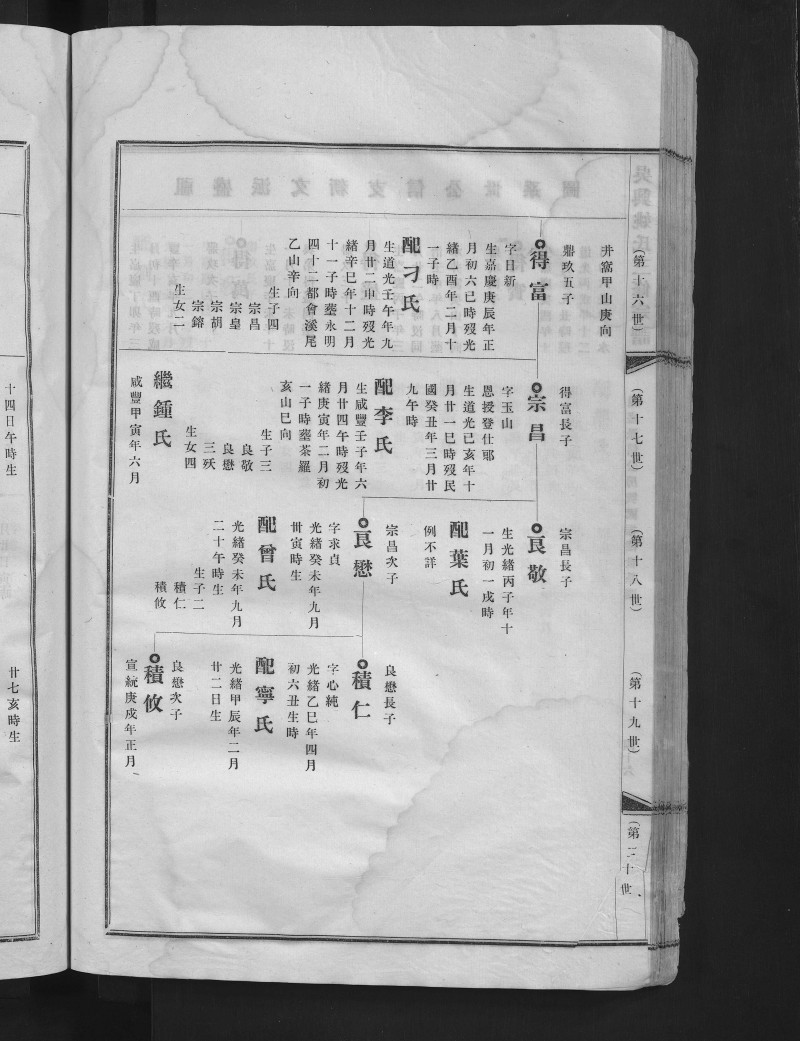 (第十六世)
井窩甲山庚向
鼎玖五子
得富
字日新
生嘉慶庚辰年正
月初六巳時歿光
緒乙酉年二月十
一子時
配刁氏
生道光壬午年九
月廿二申時歿光
緒辛巳年十二月
十一子時塟永明
四十二都會溪尾
乙山辛向
生子四
宗昌
宗皇
宗胡
宗鎔
生女二
(第十七世)
得富長子
宗昌
字玉山
恩授登仕郎
生道光己亥年十
月廿一巳時歿民
國癸丑年三月廿
九午時
配李氏
生咸豐壬子年六
月廿四午時歿光
緒庚寅年二月初
一子時塟茶羅
亥山巳向
生子三
良敬
良懋
三殀
生女四
繼鍾氏
咸豐甲寅年六月
(第十八世)
宗昌長子
良敬
生光緒丙子年十
一月初一戌時
配葉氏
例不詳
宗昌次子
良懋
字求貞
光緒癸未年九月
卌寅時生
配曾氏
光緒癸未年九月
二十午時生
生子二
積仁
積攸
(第十九世)
良懋長子
積仁
字心純
光緒乙巳年四月
初六丑生時
配寧氏
光緒甲辰年二月
廿二日生
良懋次子
積攸
宣統庚戌年正月
(第二十世)
十四日午時生
廿七亥時生